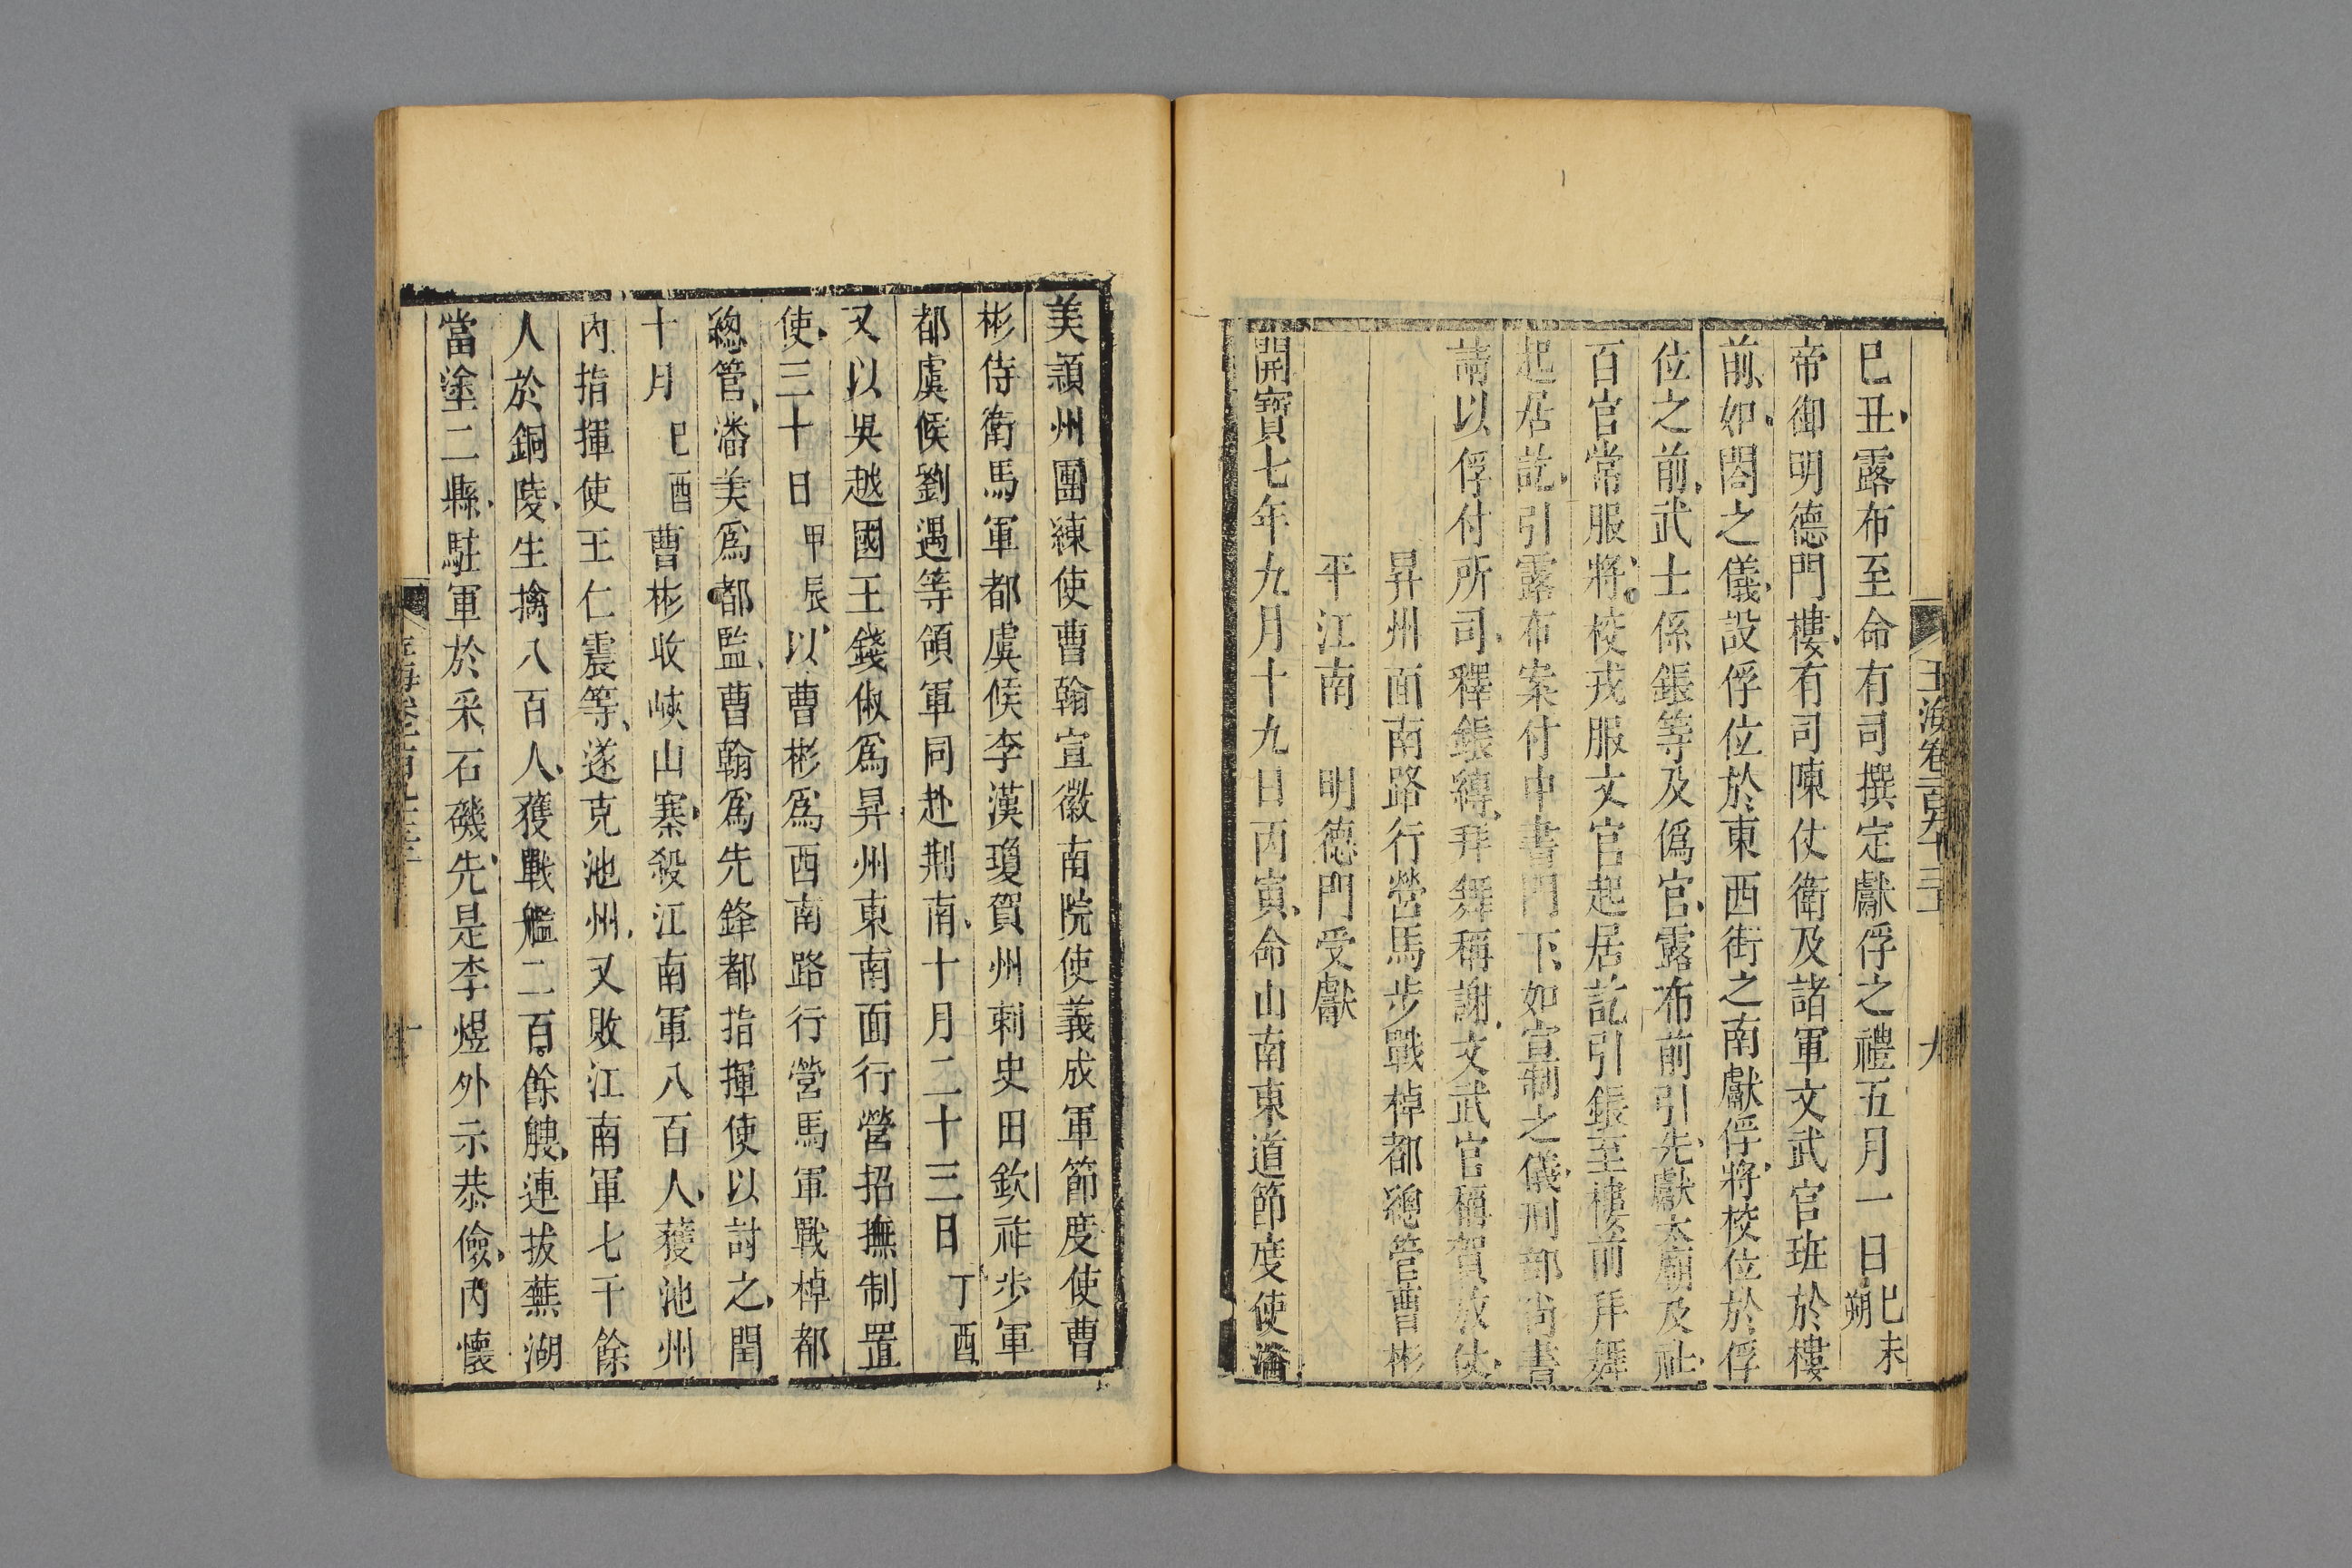 玉海卷一百九十三 九
巳丑露布至命有司撰定獻俘之禮五月一日巳未朔
帝御明德門樓有司陳仗衛及諸軍文武官班於樓
前如閤之儀設俘位於東西街之南獻俘將校位於俘
位之前武士係鋹等及僞官露布前引先獻太廟及社
百官常服將校戎服文官起居訖引鋹至樓前拜舞
起居訖引露布案付中書門下如宣制之儀刑部尚書
請以俘付所司釋鋹縛拜舞稱謝文武官稱賀放仗
昇州面南路行營馬步戰棹都總管曹彬
平江南 明德門受獻
開寶七年九月十九日丙寅命山南東道節度使潘
美頴州團練使曹翰宣徽南院使義成軍節度使曹
彬侍衛馬軍都虞候李漢瓊賀州刺史田欽祚步軍
都虞候劉遇等領軍同赴荆南十月二十三日丁酉
又以吳越國王錢俶爲昇州東南面行營招撫制置
使三十日甲辰以曹彬爲西南路行營馬軍戰棹都
總管潘美爲都監曹翰爲先鋒都指揮使以討之閏
十月巳酉曹彬收峽山寨殺江南軍八百人獲池州
內指揮使王仁震等遂克池州又敗江南軍七千餘
人於銅陵生擒八百人獲戰艦二百餘艘連拔蕪湖
當塗二縣駐軍於采石磯先是李煜外示恭儉內懷